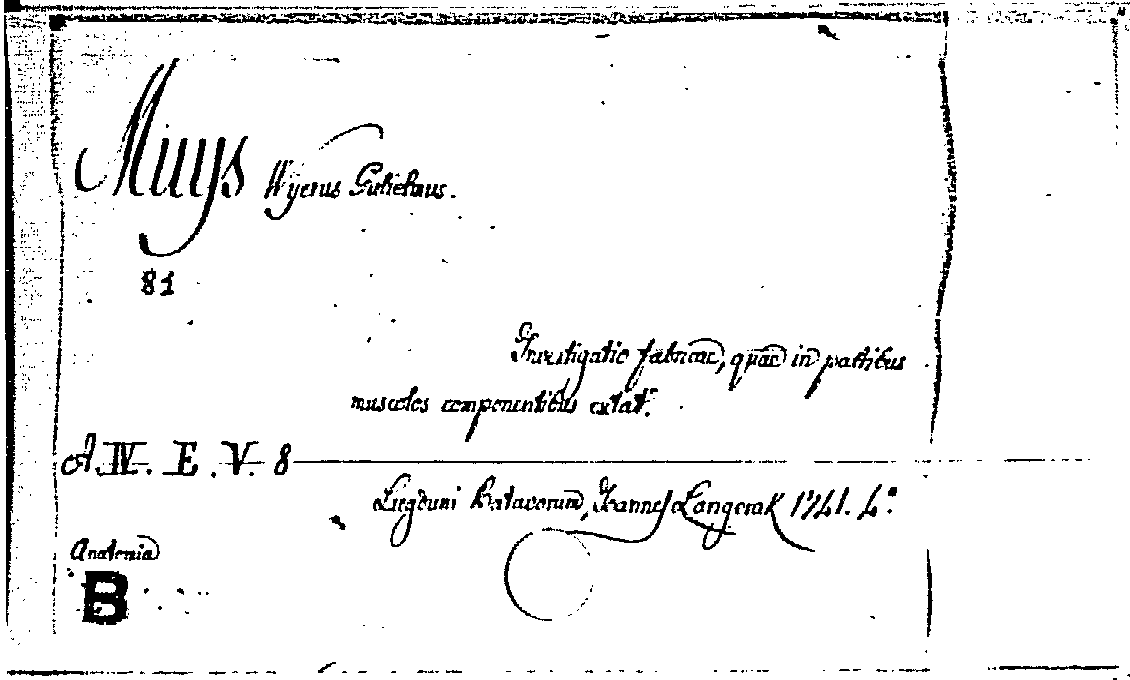 Muys Wyerus Gulielmus.
81
Investigatio fabricae, quae in partibus
musculos componentibus extat.
A. IV. E. V. 8
Lugduni Batavorum, Joannes Langerak 1741. 4°.
Anatomia
B